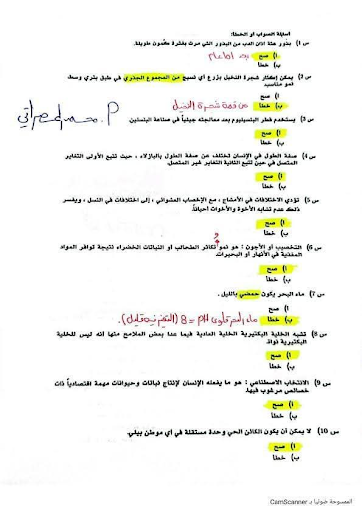 أسئلة الصواب أو الخطأ:
س 1) بذور هتة اذان الدب من البذور التي مرت بفترة كمون طويلة.
أ) صح
ب) خطأ
س 2) يمكن إكثار شجرة النخيل بزرع أي نسيج من المجموع الجذري في طبق بتري وسط نمو مناسب
أ) صح
ب) خطأ
من قمة شجرة النخل
س 3) يستخدم فطر البنسليوم بعد معالجته جينياً في صناعة البنسلين
أ) صح
ب) خطأ
س 4) صفة الطول في الإنسان تختلف عن صفة الطول بالبازلاء ، حيث تتبع الأولى التغاير
المتصل في حين تتبع الثانية التغاير غير المتصل
أ) صح
ب) خطأ
س 5) تؤدي الاختلافات في الأمشاج ، مع الإخصاب العشوائي ، إلى اختلافات في النسل ، ويفسر
ذلك عدم تشابه الأخوة والأخوات أحياناً.
أ) صح
ب) خطأ
س 6) التخصيب أو الأجون : هو نمو تكاثر الطحالب أو النباتات الخضراء نتيجة توافر المواد
المغذية في الأنهار أو البحيرات.
أ) صح
ب) خطأ
س 7) ماء البحر يكون حمضي بالليل.
أ) صح
ب) خطأ
س 8) تشبه الخلية البكتيرية الخلية العادية فيما عدا بعض الملامح منها أنه ليس للخلية
البكتيرية نواة.
أ) صح
ب) خطأ
س 9) الانتخاب الاصطناعي : هو ما يفعله الإنسان لإنتاج نباتات وحيوانات مهمة اقتصادياً ذات
خصائص مرغوب فيها.
أ) صح
ب) خطأ
س 10) لا يمكن أن يكون الكائن الحي وحدة مستقلة في أي موطن بيئي.
أ) صح
ب) خطأ
الممسوحة ضوئيا بـ CamScanner